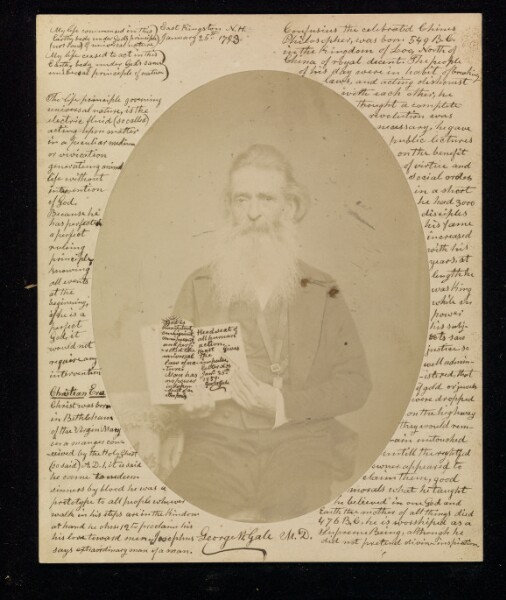 My life commenced in this
East Kingston N.H.
Earthy body under God's
January 26th 1793.
(not law) of universal nature,
My life ceased to act in this
Earthy body under God's same
universal principle of nature
The life principle governing
universal nature, is the
electric fluid (so called)
acting upon matter
in a peculiar medium
or vivication
generating animal
life without
intervention
of God.
Because he
has perfected
a perfect
ruling
principle
knowing
all events
at the
beginning,
if he is a
perfect
God, it
would not
require any
intervention
Christian Era
Christ was born
in Bethlehem
of the Virgin Mary
in a manger con-
ceived by the Holy Ghost
(so said) A.D. 1, it is said
he came to redeem
sinners by blood he was a
prototype to all people whoever
walk in his steps are in the Kindom
at hand he chose 12 to proclaim his
his love toward men. Josephus
says extraordinary man if a man.
Confucius the celebrated Chinese
Philosopher, was born 549 B.C.
in the Kingdom of Loo, North of
China of royal decent. The people
of his day were in habit of breaking
laws, and acting dishonest
with each other, he
thought a complete
revolution was
necessary, he gave
public lectures
on the benefit
of virtue and
social order
in a short
he had 3000
disciples
his fame
increased
with his
years, at
length he
was King
while in
power
his subj-
ects saw
justice so
well admin-
istered, that
if gold or jewels
were dropped
on the highway
they would rem-
ain untouched
untill the rightful
owner appeared to
claim them, good
morals what he taught
he believed in one God and
Earth the mother of all things died
476 B.C. he is worshiped as a
Supreme Being, although he
did not pretend divine inspiration
God is
universal
Law of na-
tural
Man has
no power
Head seat of
all human
action,
George M. Gale M.D.